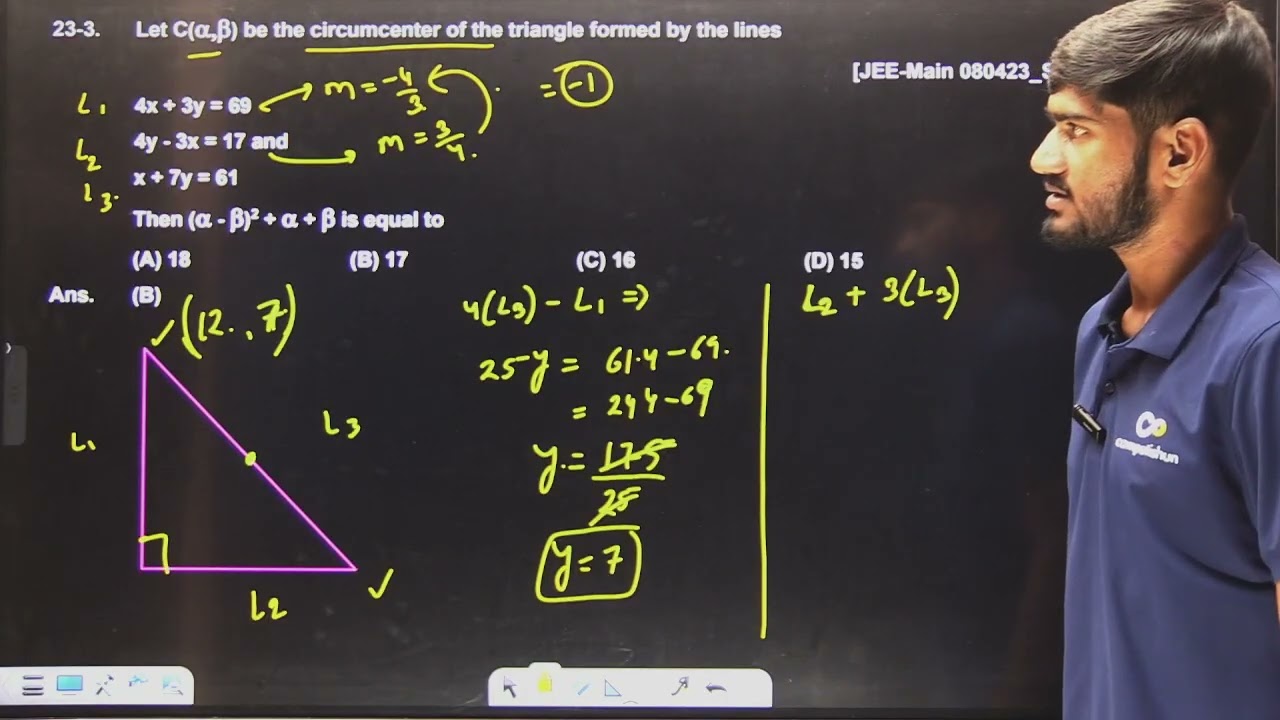 23-3. Let C(α,β) be the circumcenter of the triangle formed by the lines
[JEE-Main 080423_S
L1 4x + 3y = 69 m = -4/3 = -1
L2 4y - 3x = 17 and m = 3/4.
L3. x + 7y = 61
Then (α - β)² + α + β is equal to
(A) 18 (B) 17 (C) 16 (D) 15
Ans. (B)
(12., 7)
L1
L3
L2
4(L3) - L1 ⇒
25y = 61.4 - 69.
= 244 - 69
y. = 175/25
y = 7
L2 + 3(L3)
competishun